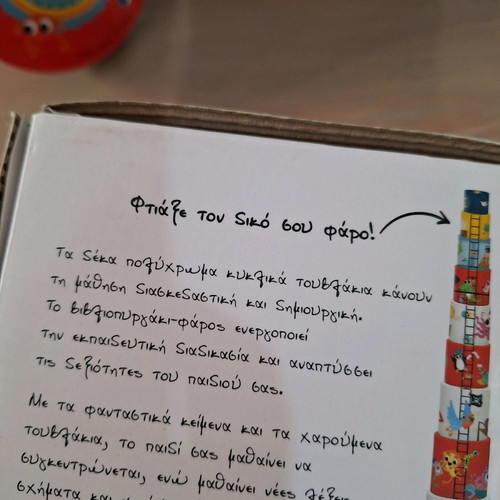 Φτιάξε τον δικό σου φάρο!
Τα δέκα πολύχρωμα κυκλικά τουβλάκια κάνουν
τη μάθηση διασκεδαστική και δημιουργική.
Το βιβλιοπυργάκι-φάρος ενεργοποιεί
την εκπαιδευτική διαδικασία και αναπτύσσει
τις δεξιότητες του παιδιού σας.
Με τα φανταστικά κείμενα και τα χαρούμενα
τουβλάκια, το παιδί σας μαθαίνει να
συγκεντρώνεται, ενώ μαθαίνει νέες λέξεις
σχήματα και